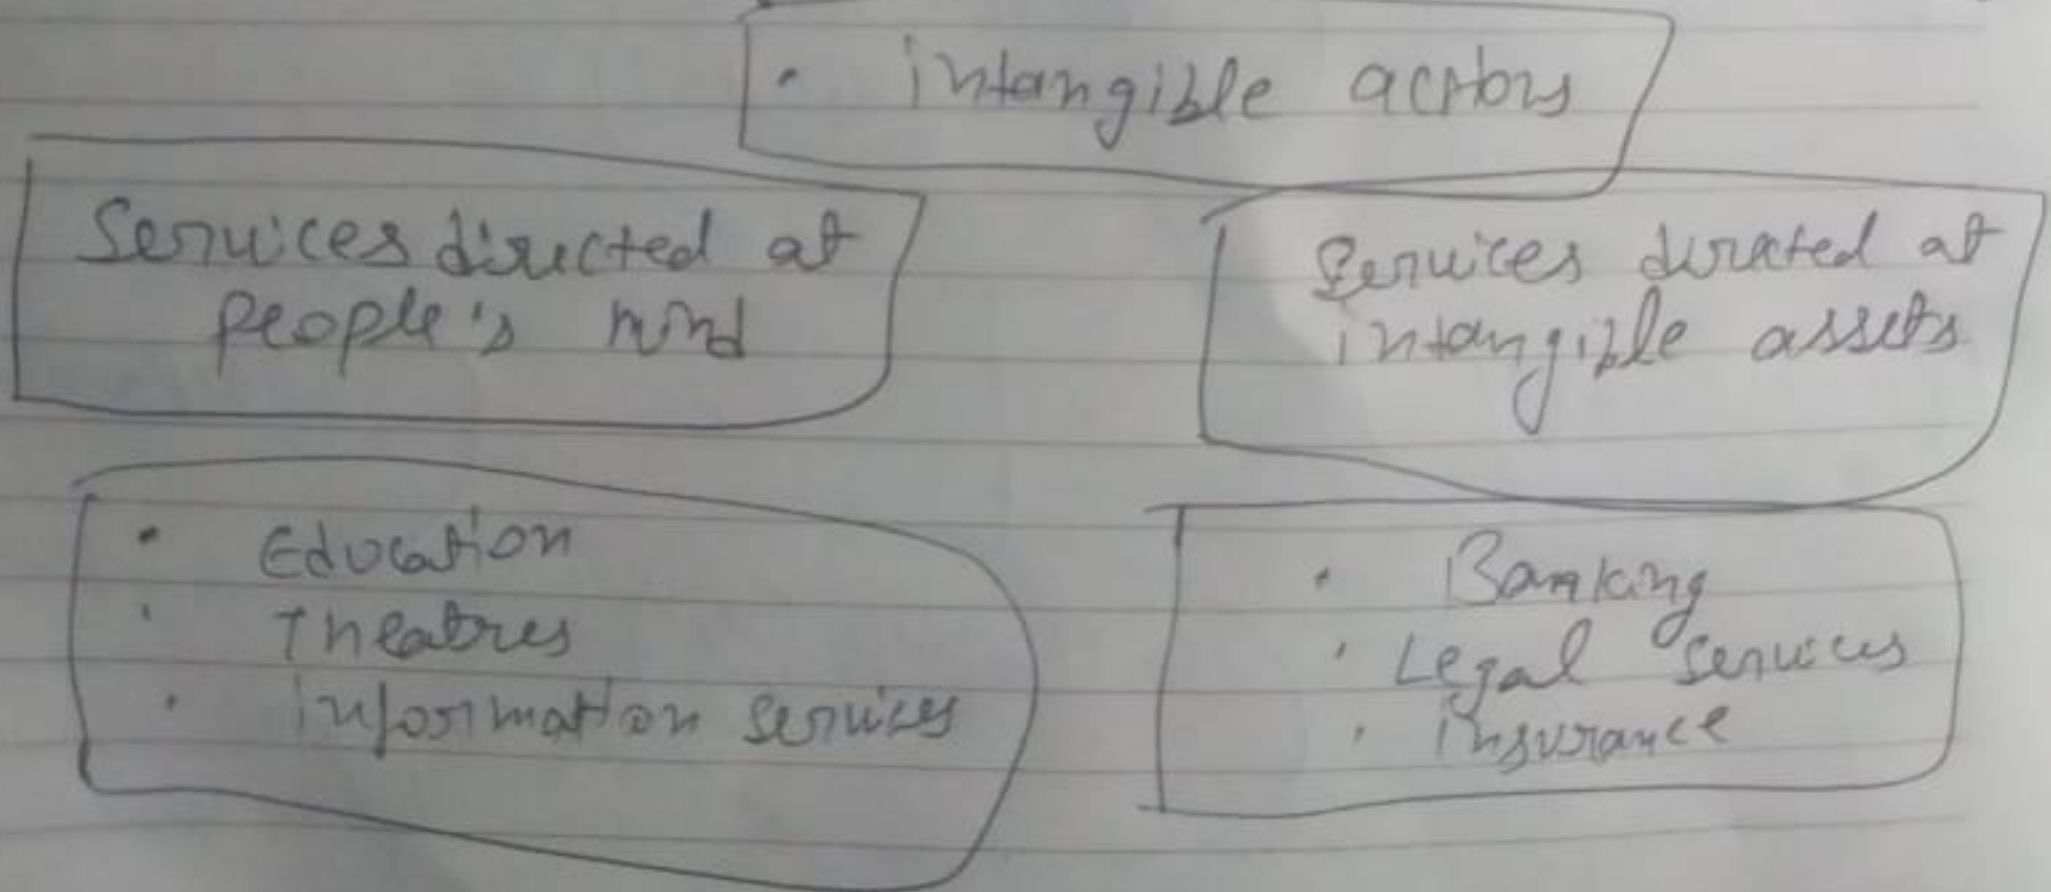 • intangible actions
Services directed at
people's mind
Services directed at
intangible assets
• Education
• Theatres
• information services
• Banking
• Legal services
• insurance